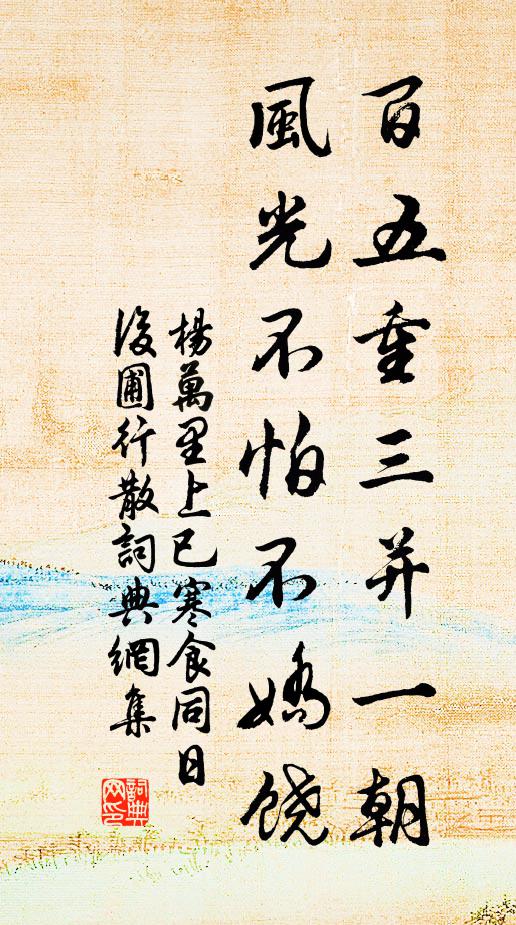 百五重三并一朝
風光不怕不嬌饒
楊萬里上巳寒食同日
後圃行散詞典網集
詞典网印